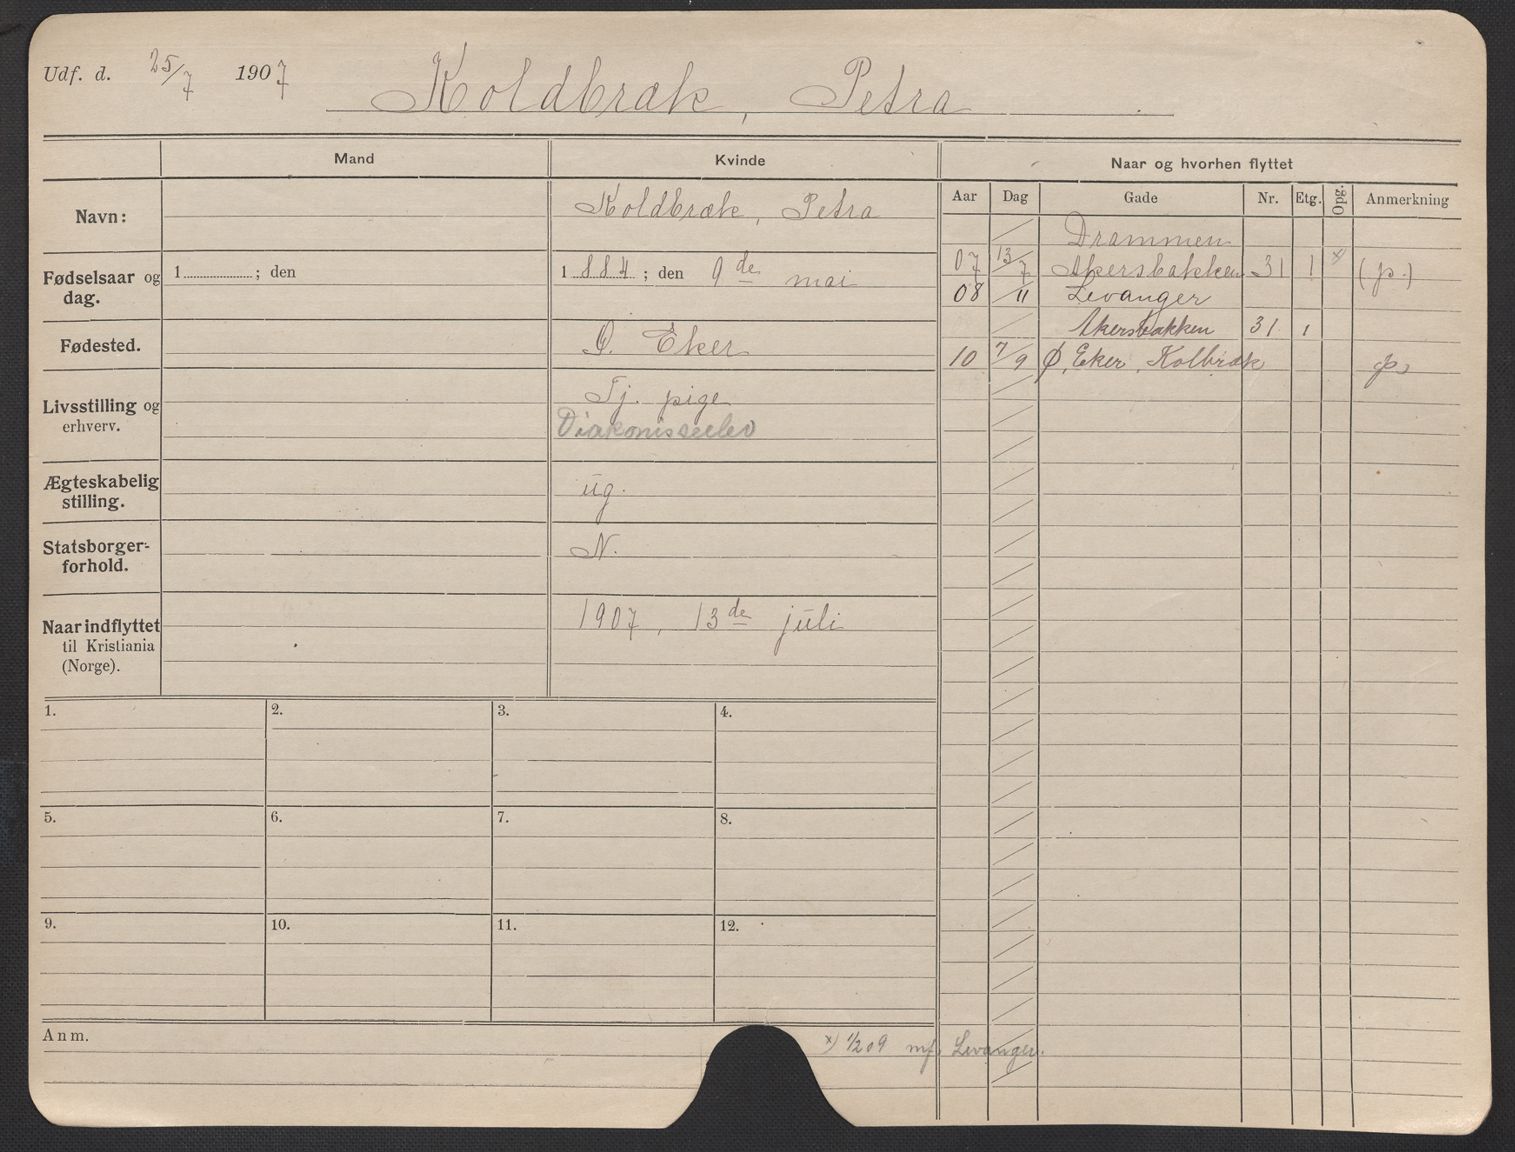 Udf. d. 25/7 1907 Koldbræk, Petra
Mand Kvinde Naar og hvorhen flyttet
Aar Dag Gade Nr. Etg. Opg. Anmerkning
Navn: Koldbræk, Petra
Drammen
07 13/7 Akersbakken 31 1 x) (p.)
08 /11 Levanger
Akersbakken 31 1
10 7/9 Ø. Eker, Kolbræk p.
Fødselsaar og dag. 1 ; den 1 884 ; den 9de mai
Fødested. Ø. Eker
Livsstilling og erhverv. Tj. pige
Diakonisseelev
Ægteskabelig stilling. ug.
Statsborger-forhold. N.
Naar indflyttet til Kristiania (Norge). 1907, 13de juli
1. 2. 3. 4.
5. 6. 7. 8.
9. 10. 11. 12.
Anm.
x) 1/2 09 mf. Levanger.